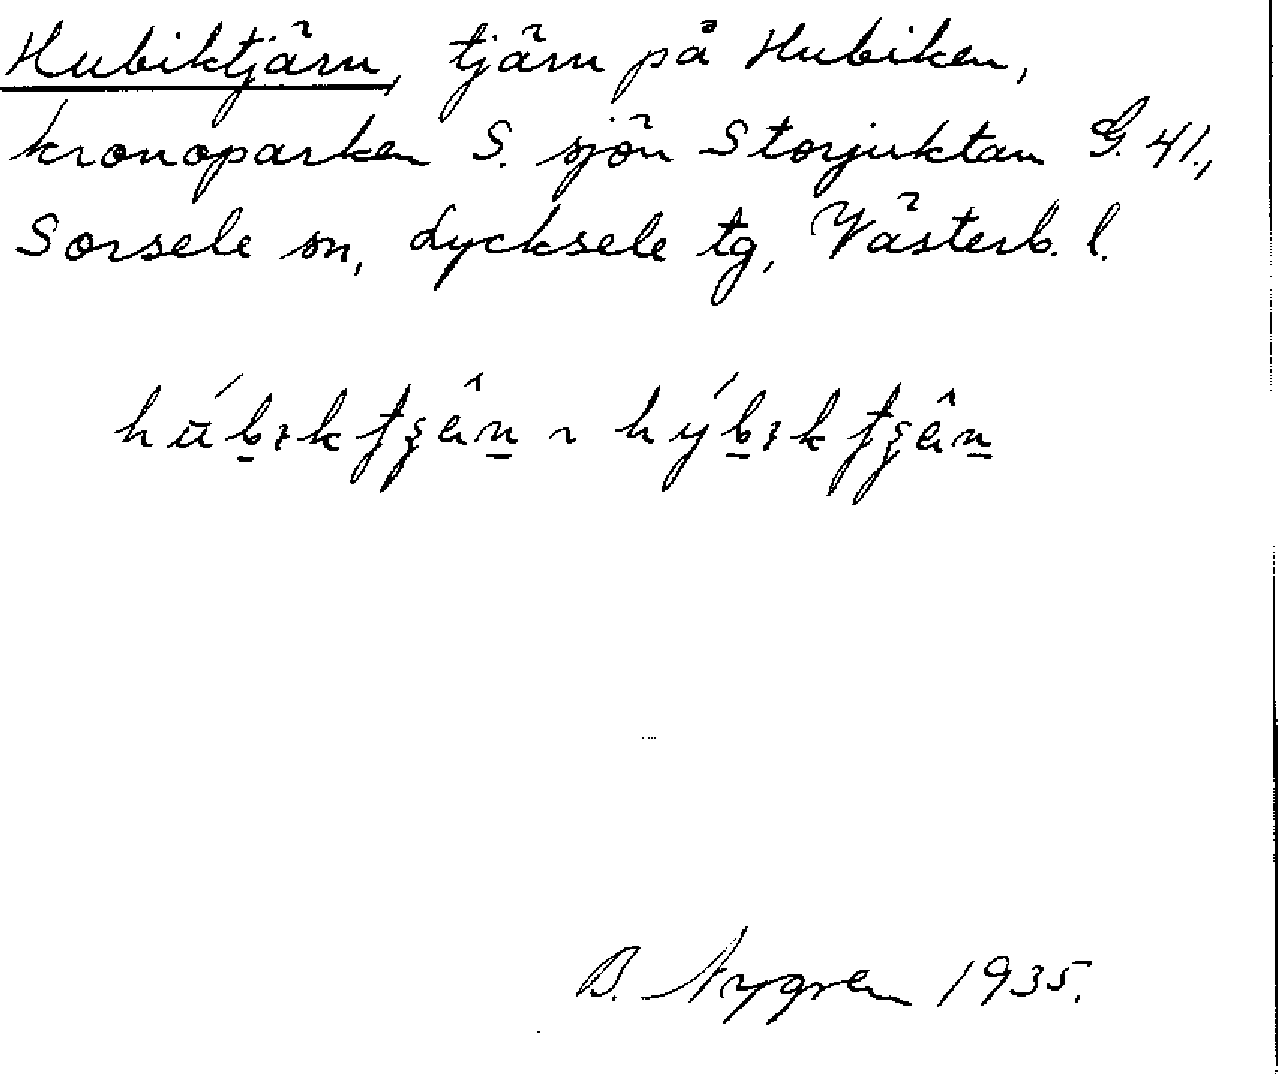 Hubiktjärn, tjärn på Hubiken,
kronoparken S. sjön Storjuktan G. 41.,
Sorsele sn, Lycksele tg, Västerb. l.
B. Nygren 1935.